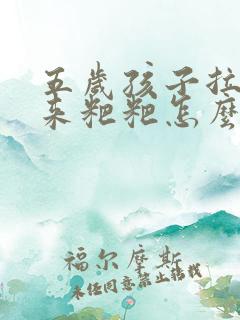 五岁孩子拉
来粑粑怎麼
福尔摩斯
未经同意禁止转载